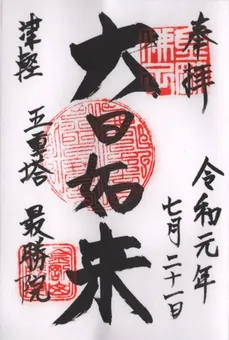 奉拝
令和元年
七月二十一日
大日如来
津軽 五重塔 最勝院